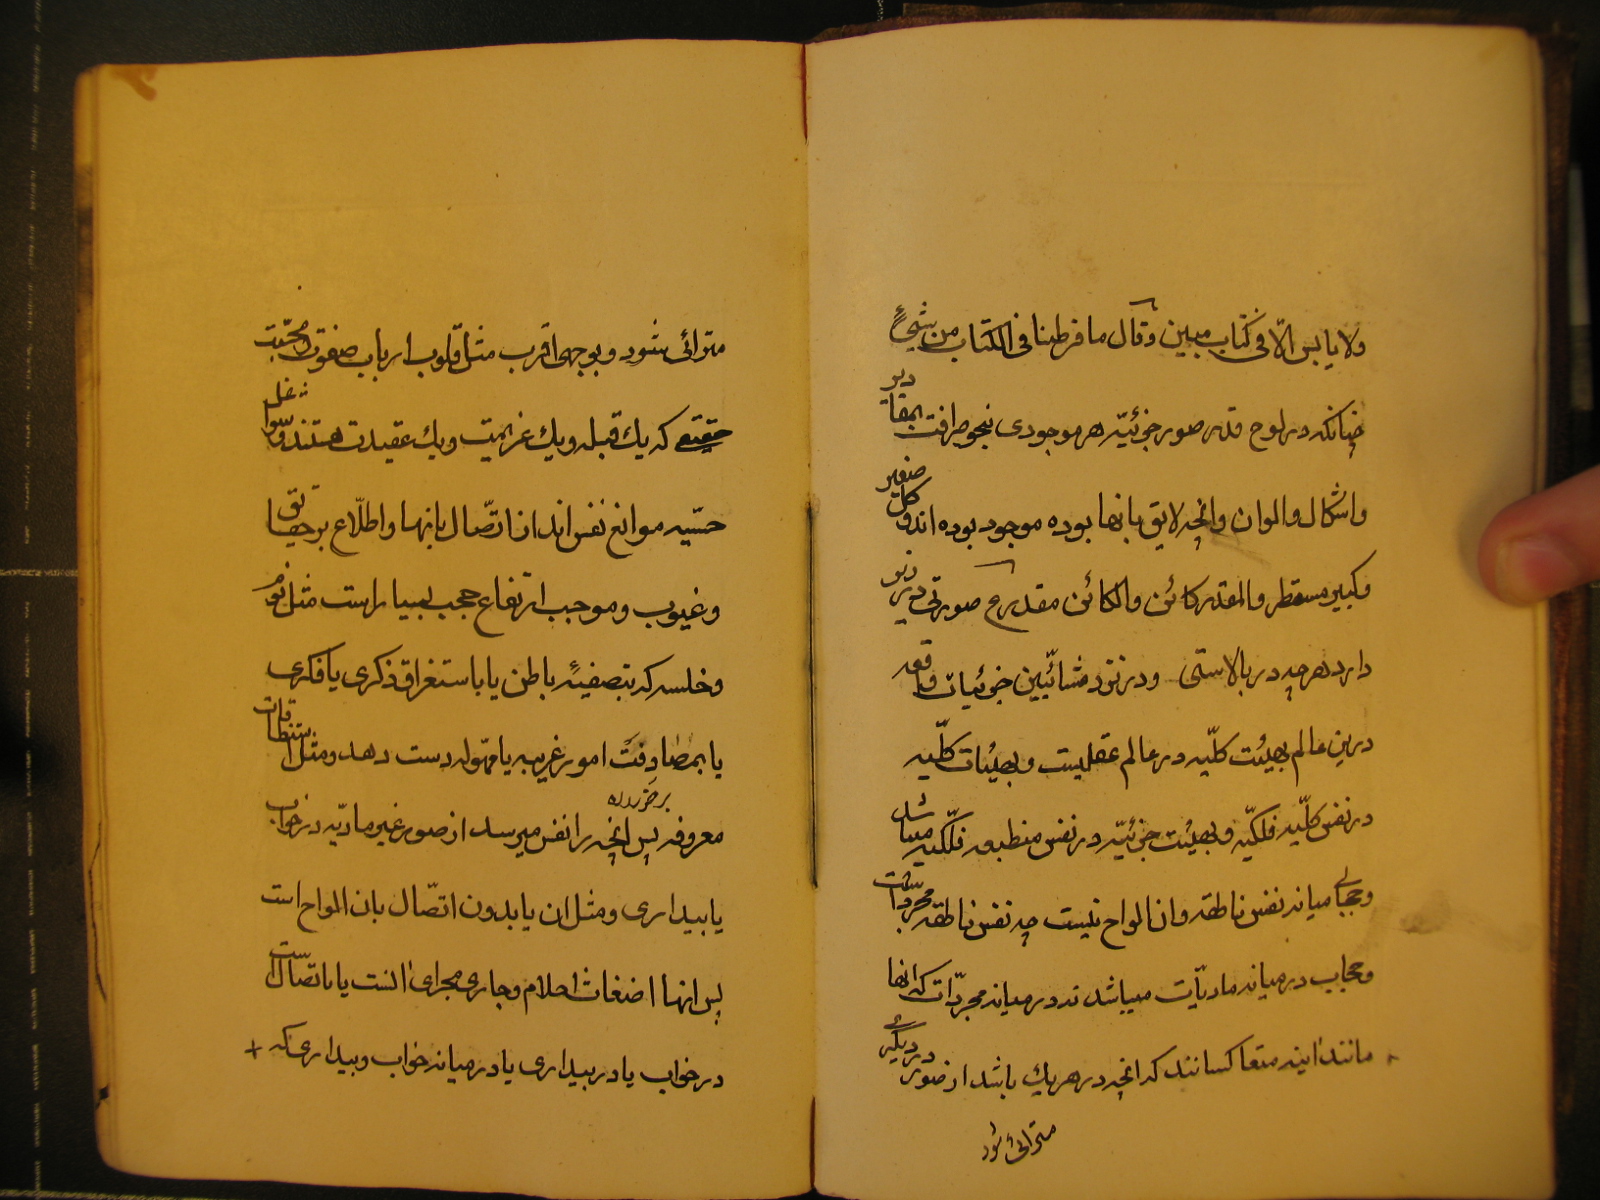 ولا یابس الّا فی کتاب مبین وقال ما فرطنا فی الکتاب من شیءٍ
چنانکه در لوح قدر صور جزئیّه هر موجودی بنحو صرافت بمقادیر
واشکال والوان وانچه لایق بانها بوده موجود بوده اند وکل صغیر
وکبیر مستطر والمقدر کائن والکائن مقدر ع صورتی در زیر
دارد هرچه در بالاستی ودر نزد مشائیین جزئیات واقعه
درین عالم بهیئت کلّیه در عالم عقلیست وبهیئات کلّیه
در نفس کلّیه فلکیّه وبهیئت جزئیّه در نفس منطبعه فلکیه میباشد
وحجابی میانه نفس ناطقه وان الواح نیست چه نفس ناطقه مجرد است
وحجاب در میانه مادیّات میباشد نه در میانه مجرّدات که انها
مانند اینه متعاکسانند که انچه در هر یک باشد از صور در دیگری
مترائی شود
مترائی شود وبوجهی اقرب مثل قلوب ارباب صفوت ومحبّت
حقیقتی که یک قبله ویک عزیمت ویک عقیدت هستند وشواغل
حسّیه موانع نفس اند از اتصّال بانها واطلّاع بر حقایق
وغیوب وموجب ارتفاع حجب بسیار است مثل نوم
وخلسه که بتصفیهٔ باطن یا باستغراق ذکری یا فکری
یا بمصادفت امور غریبه یا مهوله دست دهد ومثل استنطاقات
معروفه پس انچه را نفس میرسد از صور غیر مادیّه در خواب
یا بیداری ومثل ان یا بدون اتصّال بان الواح است
پس انها اضغاث احلام وجاری مجرای انست یا باتصّال است
در خواب یا در بیداری یا در میانه خواب وبیداری که